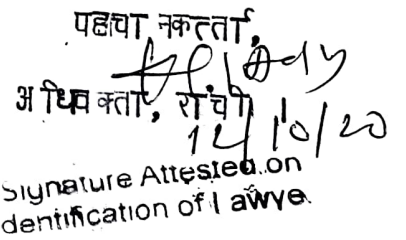 पहचा नकर्त्ता,
अधिवक्ता, राँची
12/10/20
Signature Attested on
dentification of lawye